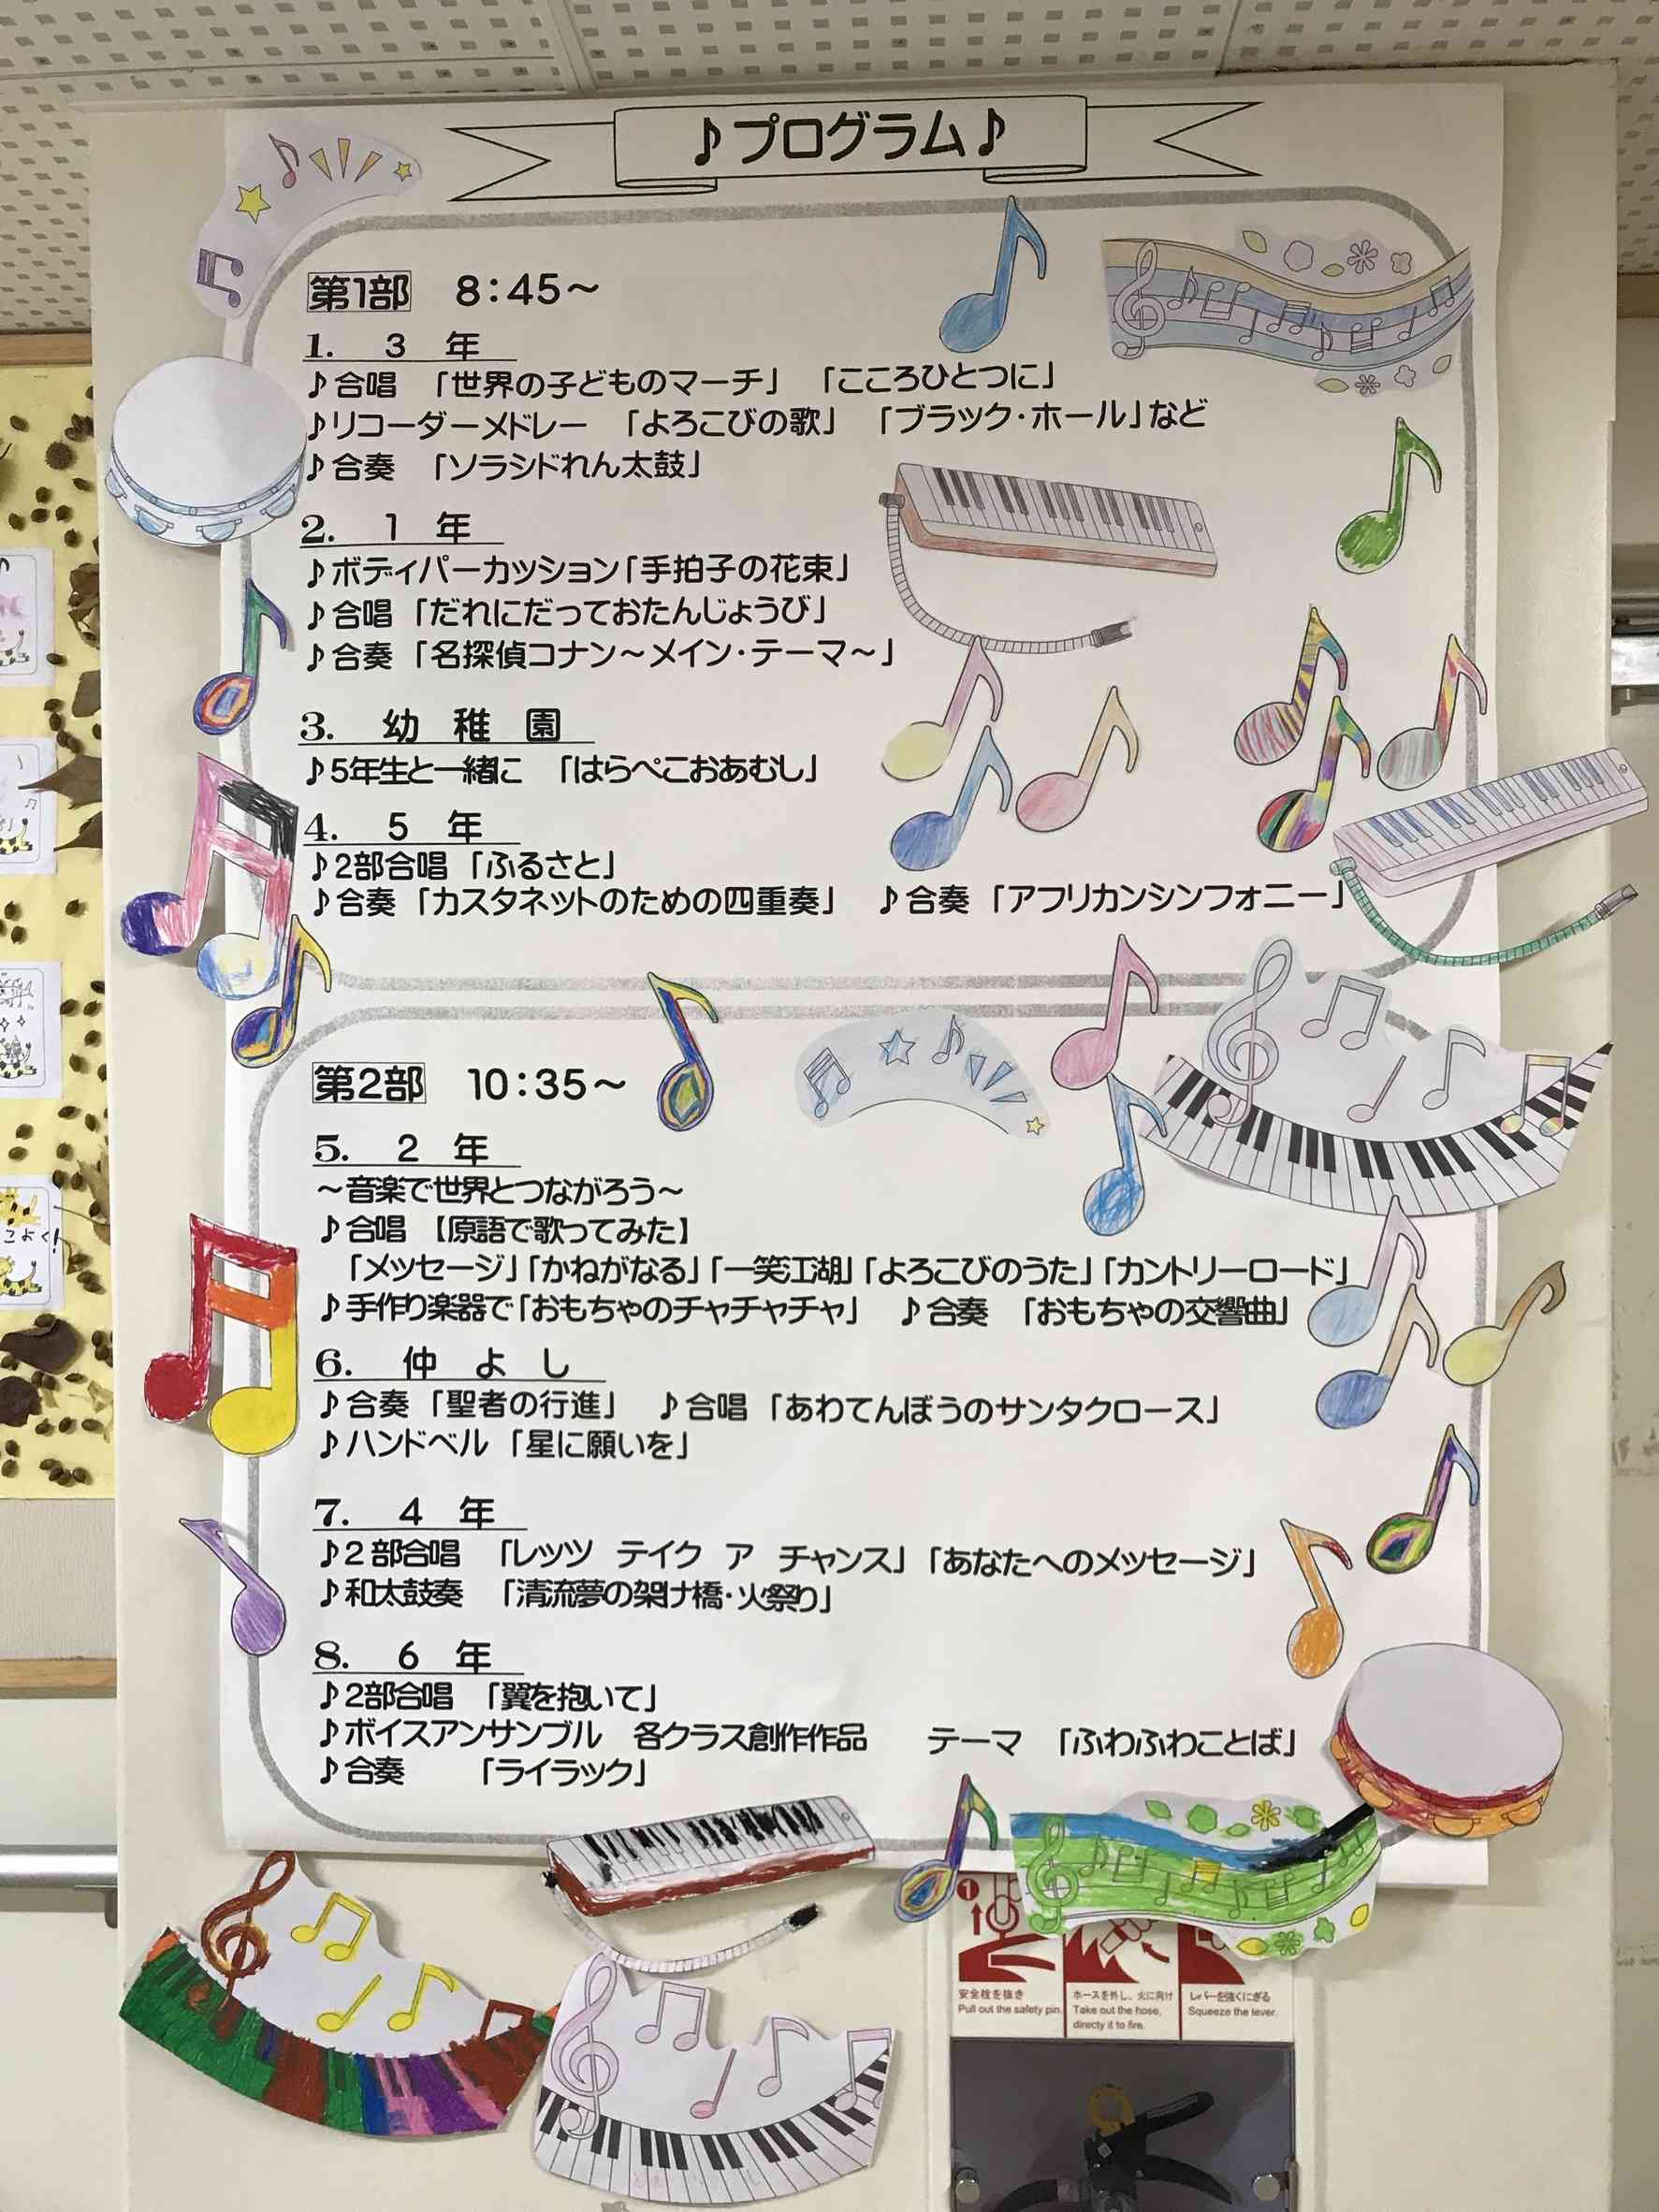 ♪プログラム♪
第1部　8：45～
1.　3　年
♪合唱　「世界の子どものマーチ」　「こころひとつに」
♪リコーダーメドレー　「よろこびの歌」　「ブラック・ホール」など
♪合奏　「ソラシドれん太鼓」
2.　1　年
♪ボディパーカッション「手拍子の花束」
♪合唱　「だれにだっておたんじょうび」
♪合奏　「名探偵コナン～メイン・テーマ～」
3.　幼　稚　園
♪5年生と一緒に　「はらぺこおあむし」
4.　5　年
♪2部合唱　「ふるさと」
♪合奏　「カスタネットのための四重奏」　♪合奏　「アフリカンシンフォニー」
第2部　10：35～
5.　2　年
～音楽で世界とつながろう～
♪合唱　【原語で歌ってみた】
「メッセージ」「かねがなる」「一笑江湖」「よろこびのうた」「カントリーロード」
♪手作り楽器で「おもちゃのチャチャチャ」　♪合奏　「おもちゃの交響曲」
6.　仲　よ　し
♪合奏　「聖者の行進」　♪合唱　「あわてんぼうのサンタクロース」
♪ハンドベル　「星に願いを」
7.　4　年
♪2部合唱　「レッツ　テイク　ア　チャンス」「あなたへのメッセージ」
♪和太鼓奏　「清流夢の架け橋・火祭り」
8.　6　年
♪2部合唱　「翼を抱いて」
♪ボイスアンサンブル　各クラス創作作品　　テーマ　「ふわふわことば」
♪合奏　　「ライラック」
こよく!
1
安全栓を抜き
Pull out the safety pin.
ホースを外し、火に向け
Take out the hose,
directy it to fire.
レバーを強くにぎる
Squeeze the lever.